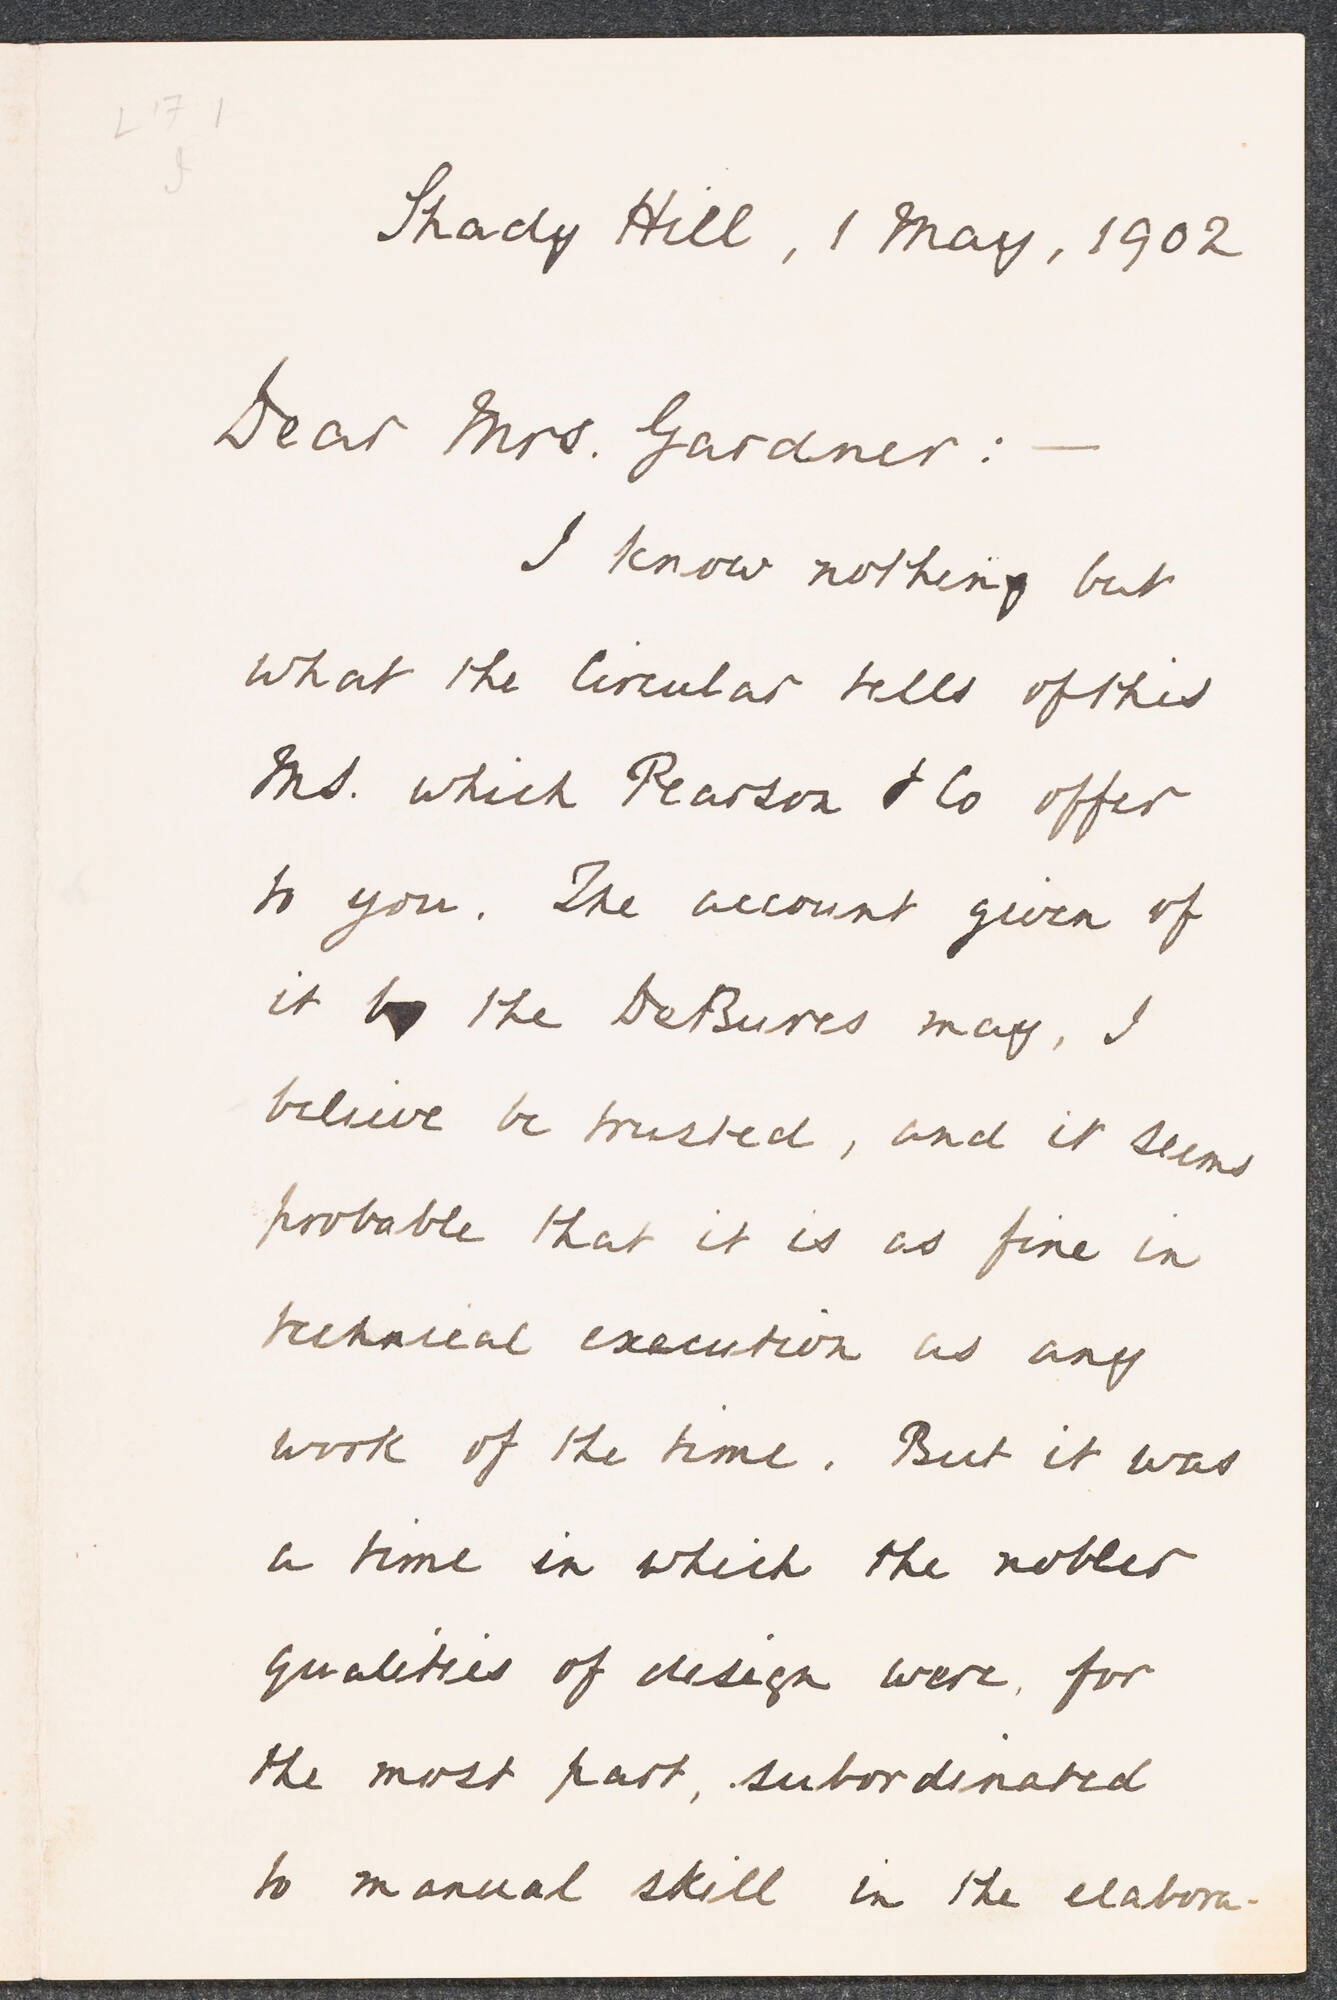 Shady Hill, 1 May, 1902
Dear Mrs. Gardner: —
I know nothing but
what the Circular tells of this
MS. which Pearson & Co offer
to you. The account given of
it by the DeBures may, I
believe be trusted, and it seems
probable that it is as fine in
technical execution as any
work of the time. But it was
a time in which the nobler
qualities of design were, for
the most part, subordinated
to manual skill in the elabora-